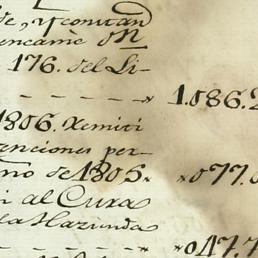 de, y constan
encame
176. del Li-
1.086.2
1806. Remiti
enciones per-
no de 1805. 077.
i al Cura
la Hazienda
047.7